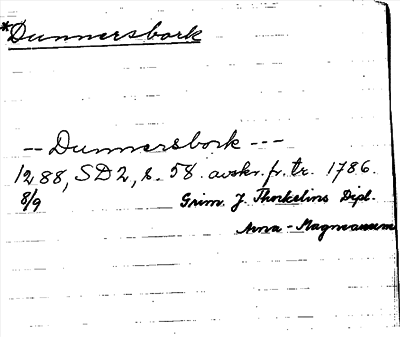 *Dunnersbork
-- Dunnersbork ---
1288, SD2, s. 58. avskr. fr. tr. 1786.
8/9 Grim. J. Thorkelins Dipl.
Arna-Magnæanum